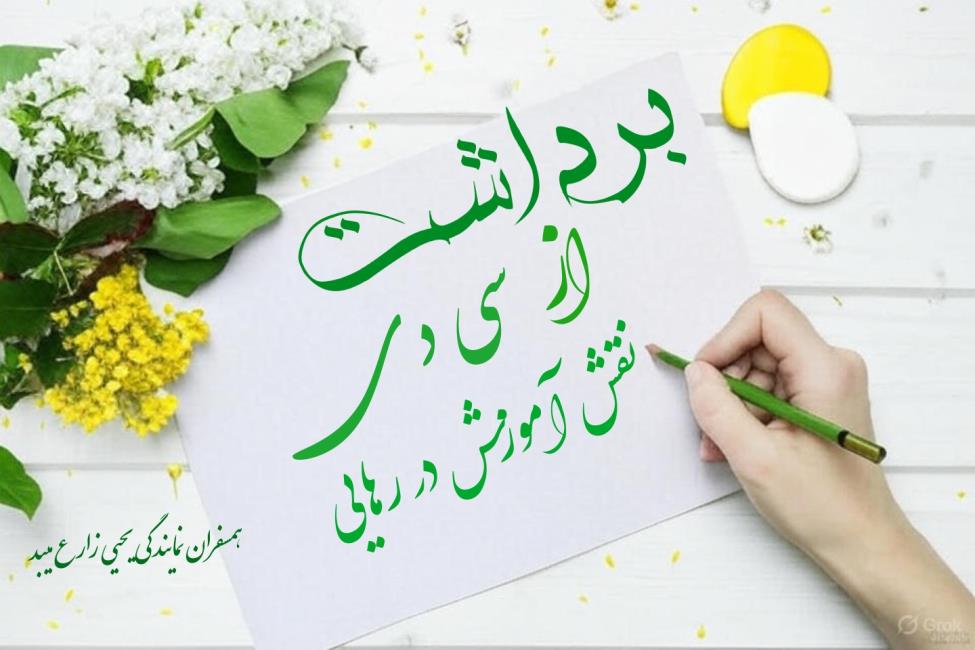 برداشت
از سی دی
نقش آموزش در رهایی
همسفران نمایندگی یحیی زارع میبد
Grok